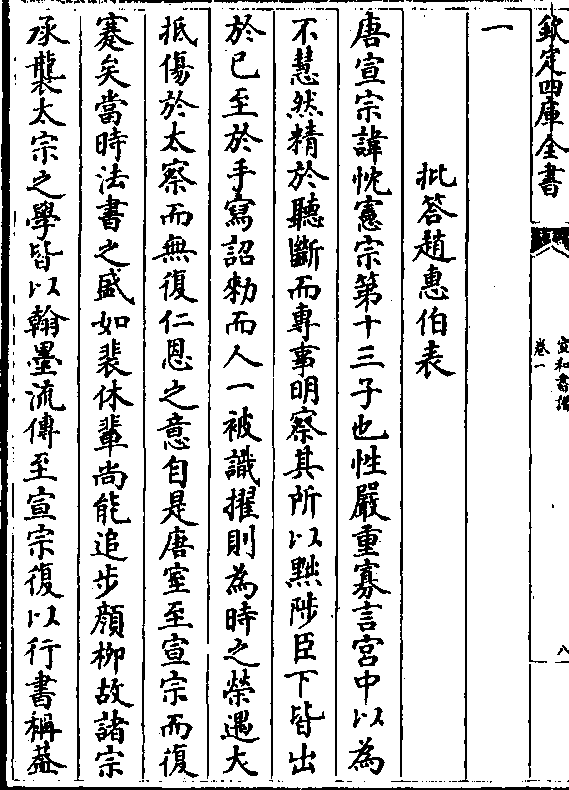 欽定四庫全書
宣和書譜
卷一
八
一
批答趙惠伯表
唐宣宗諱忱憲宗第十三子也性嚴重寡言宮中以為
不慧然精於聽斷而專事明察其所以黜陟臣下皆出
於已至於手寫詔勅而人一被識擢則為時之榮遇大
抵傷於太察而無復仁恩之意自是唐室至宣宗而復
蹇矣當時法書之盛如裴休輩尚能追步顔栁故諸宗
承襲太宗之學皆以翰墨流傳至宣宗復以行書稱葢